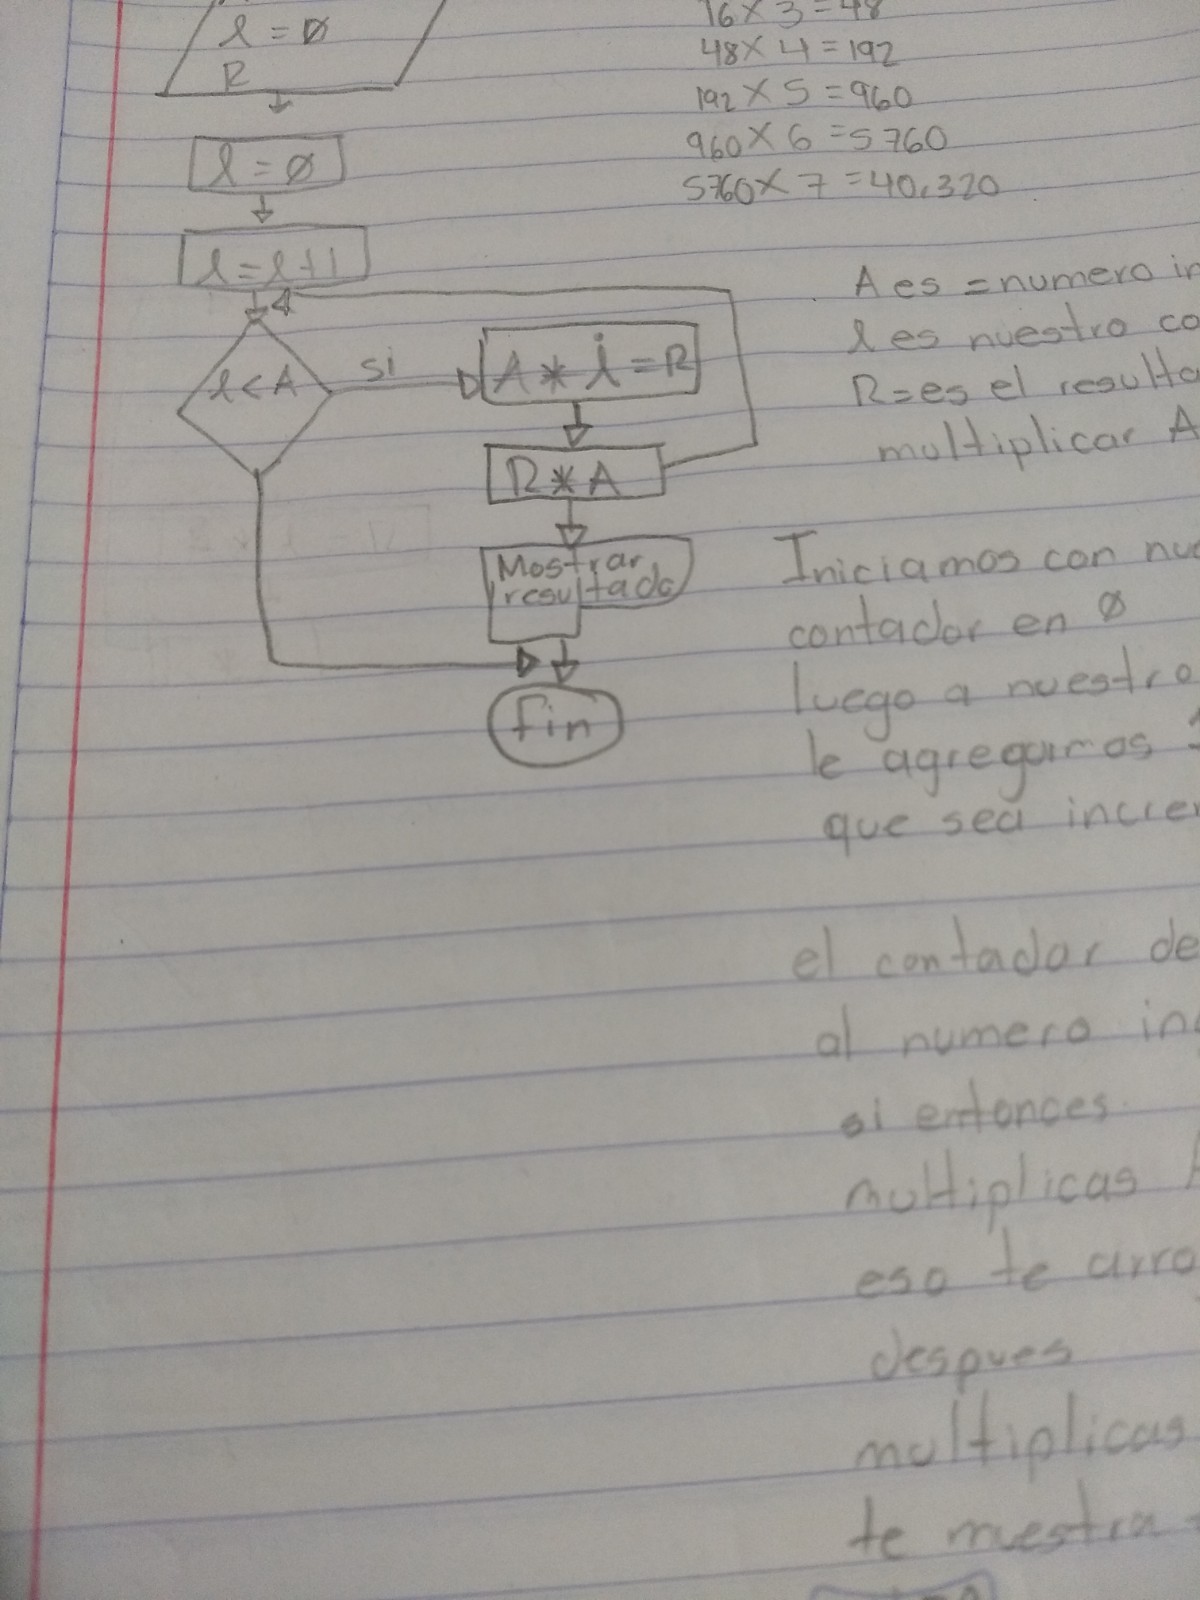 l = ø
R
l = ø
l = l+1
l < A
si
A * i = R
R * A
Mostrar
resultado
fin
16 x 3 = 48
48 x 4 = 192
192 x 5 = 960
960 x 6 = 5760
5760 x 7 = 40.320
A es = numero
l es nuestro
R = es el
multiplicar A
Iniciamos con
contador en ø
luego a nuestro
le agregamos
que sea
el contador
al numero
si entonces
multiplicas
eso te
despues
multiplicas
te mestra